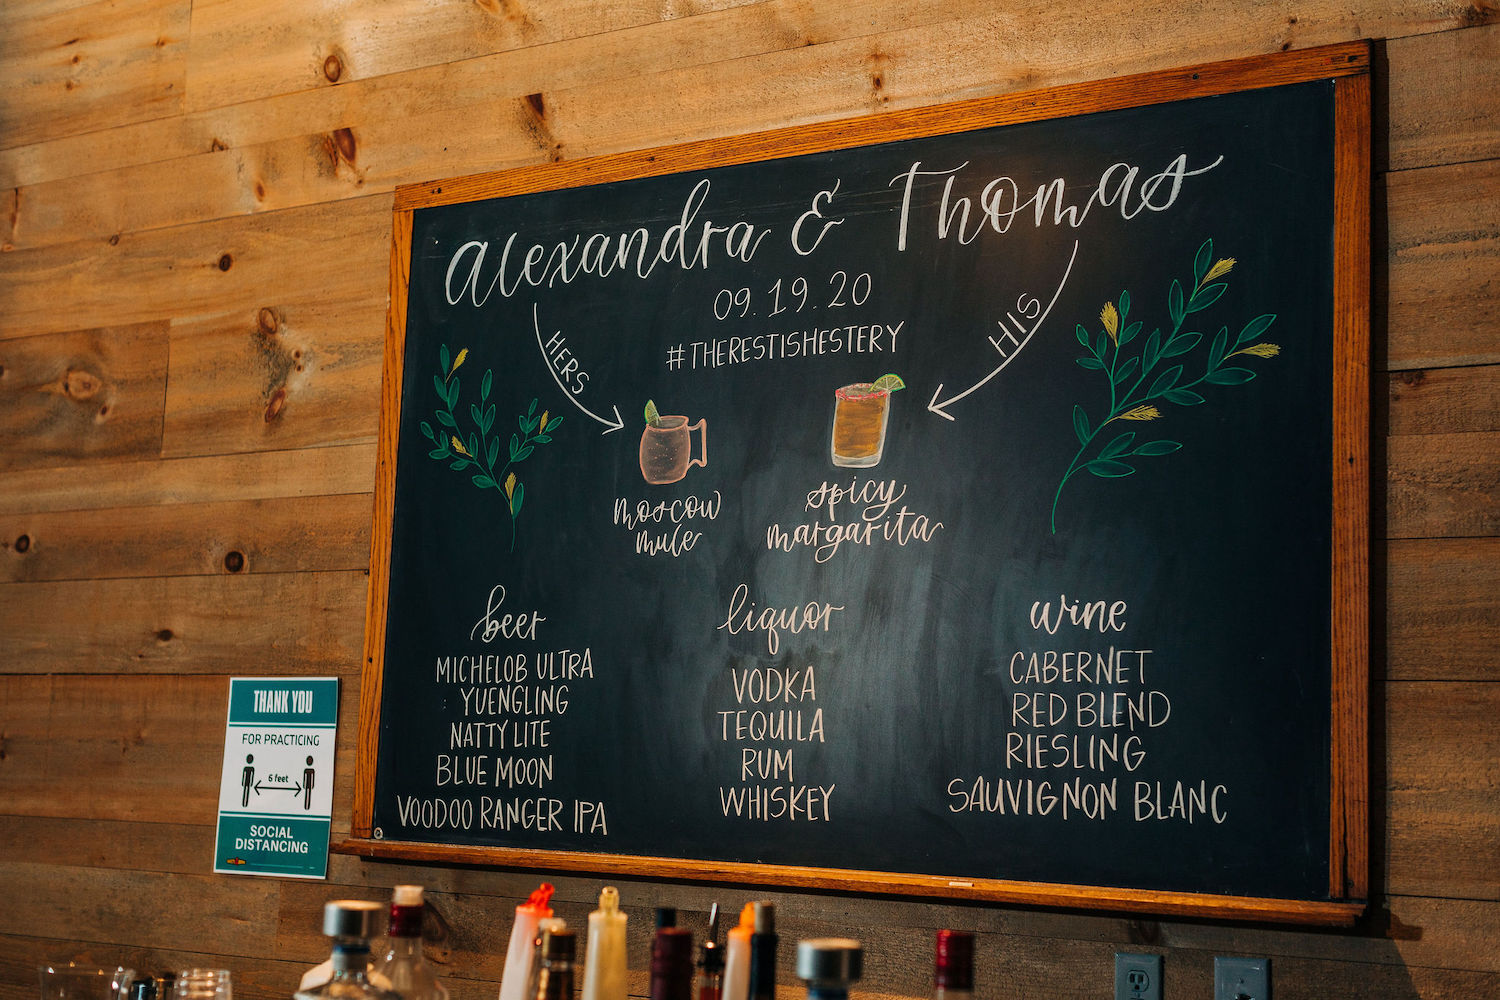 alexandra & Thomas
09.19.20
#THERESTISHESTERY
HERS
HIS
moscow
mule
spicy
margarita
beer
MICHELOB ULTRA
YUENGLING
NATTY LITE
BLUE MOON
VOODOO RANGER IPA
liquor
VODKA
TEQUILA
RUM
WHISKEY
wine
CABERNET
RED BLEND
RIESLING
SAUVIGNON BLANC
THANK YOU
FOR PRACTICING
6 feet
SOCIAL
DISTANCING